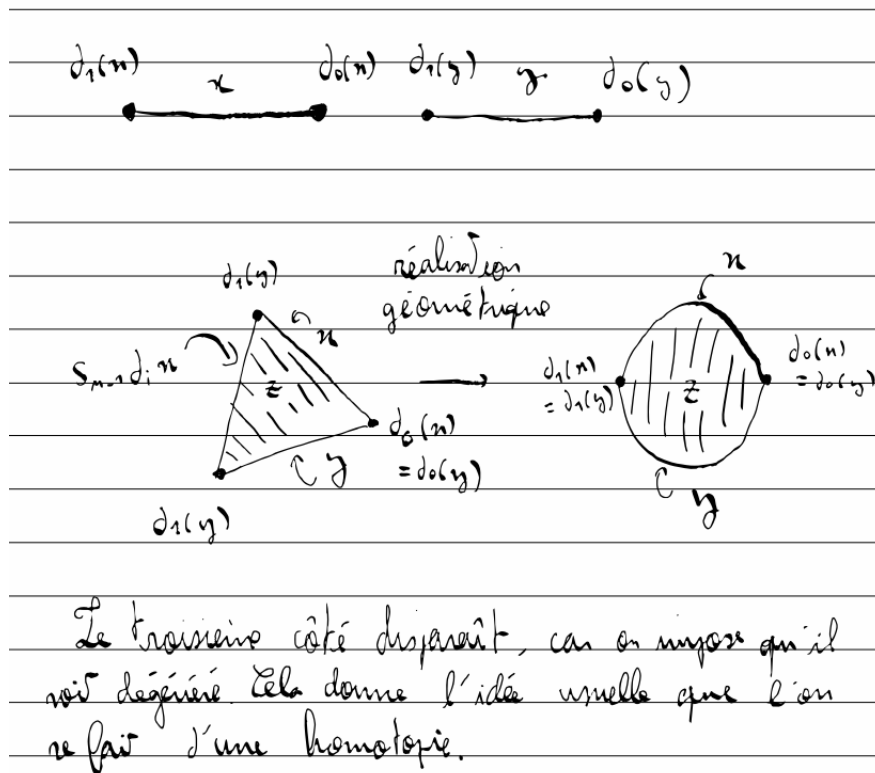 d₁(x) x d₀(x) d₁(y) y d₀(y)
d₁(y) x réalisation x
géométrique
Sₙ₋₁dᵢx z d₁(x) = d₁(y) z d₀(x) = d₀(y)
d₀(x) = d₀(y)
y y
d₁(y)
Le troisième côté disparaît, car on impose qu'il
soit dégénéré. Cela donne l'idée usuelle que l'on
se fait d'une homotopie.